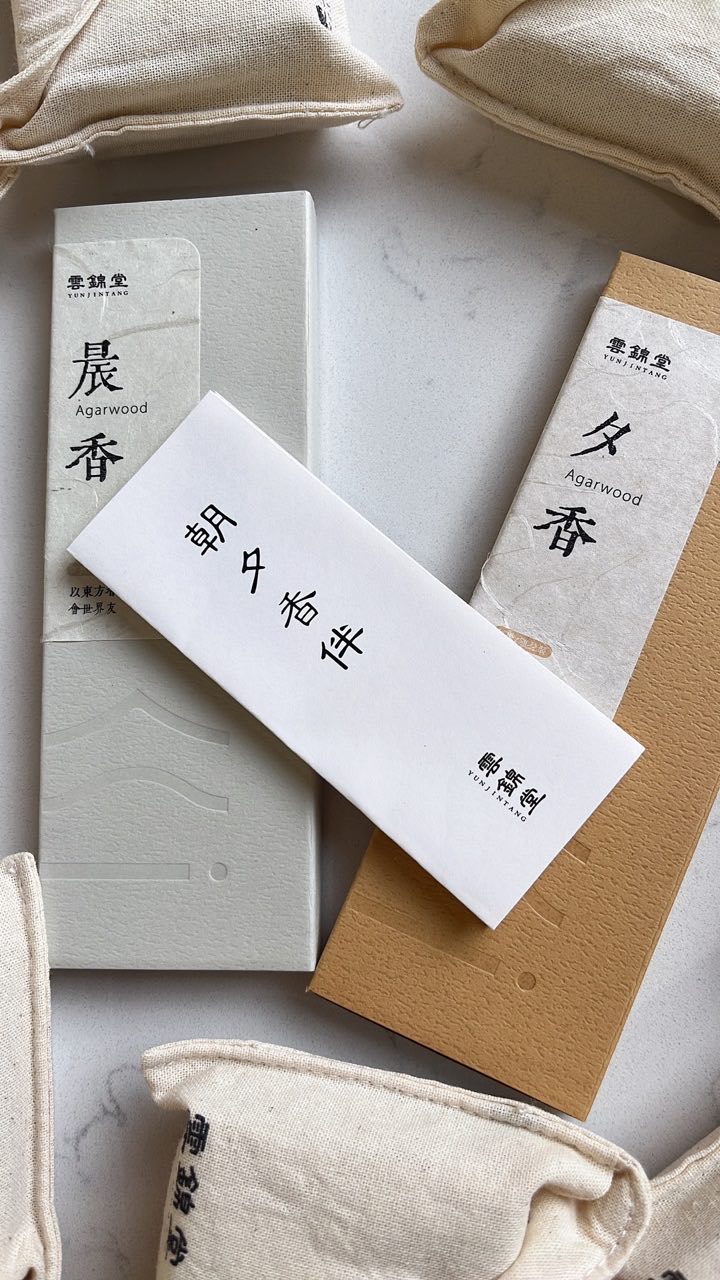 雲錦堂
YUNJINTANG
晨
Agarwood
香
以東方香
會世界友
朝夕香伴
雲錦堂
YUNJINTANG
雲錦堂
YUNJINTANG
夕
Agarwood
香
雲錦堂